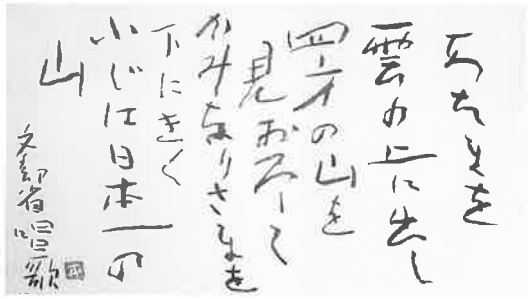 あたまを
雲の上に出し
四方の山を
見おろして
かみなりさまを
下にきく
ふじは日本一の
山
文部省唱歌